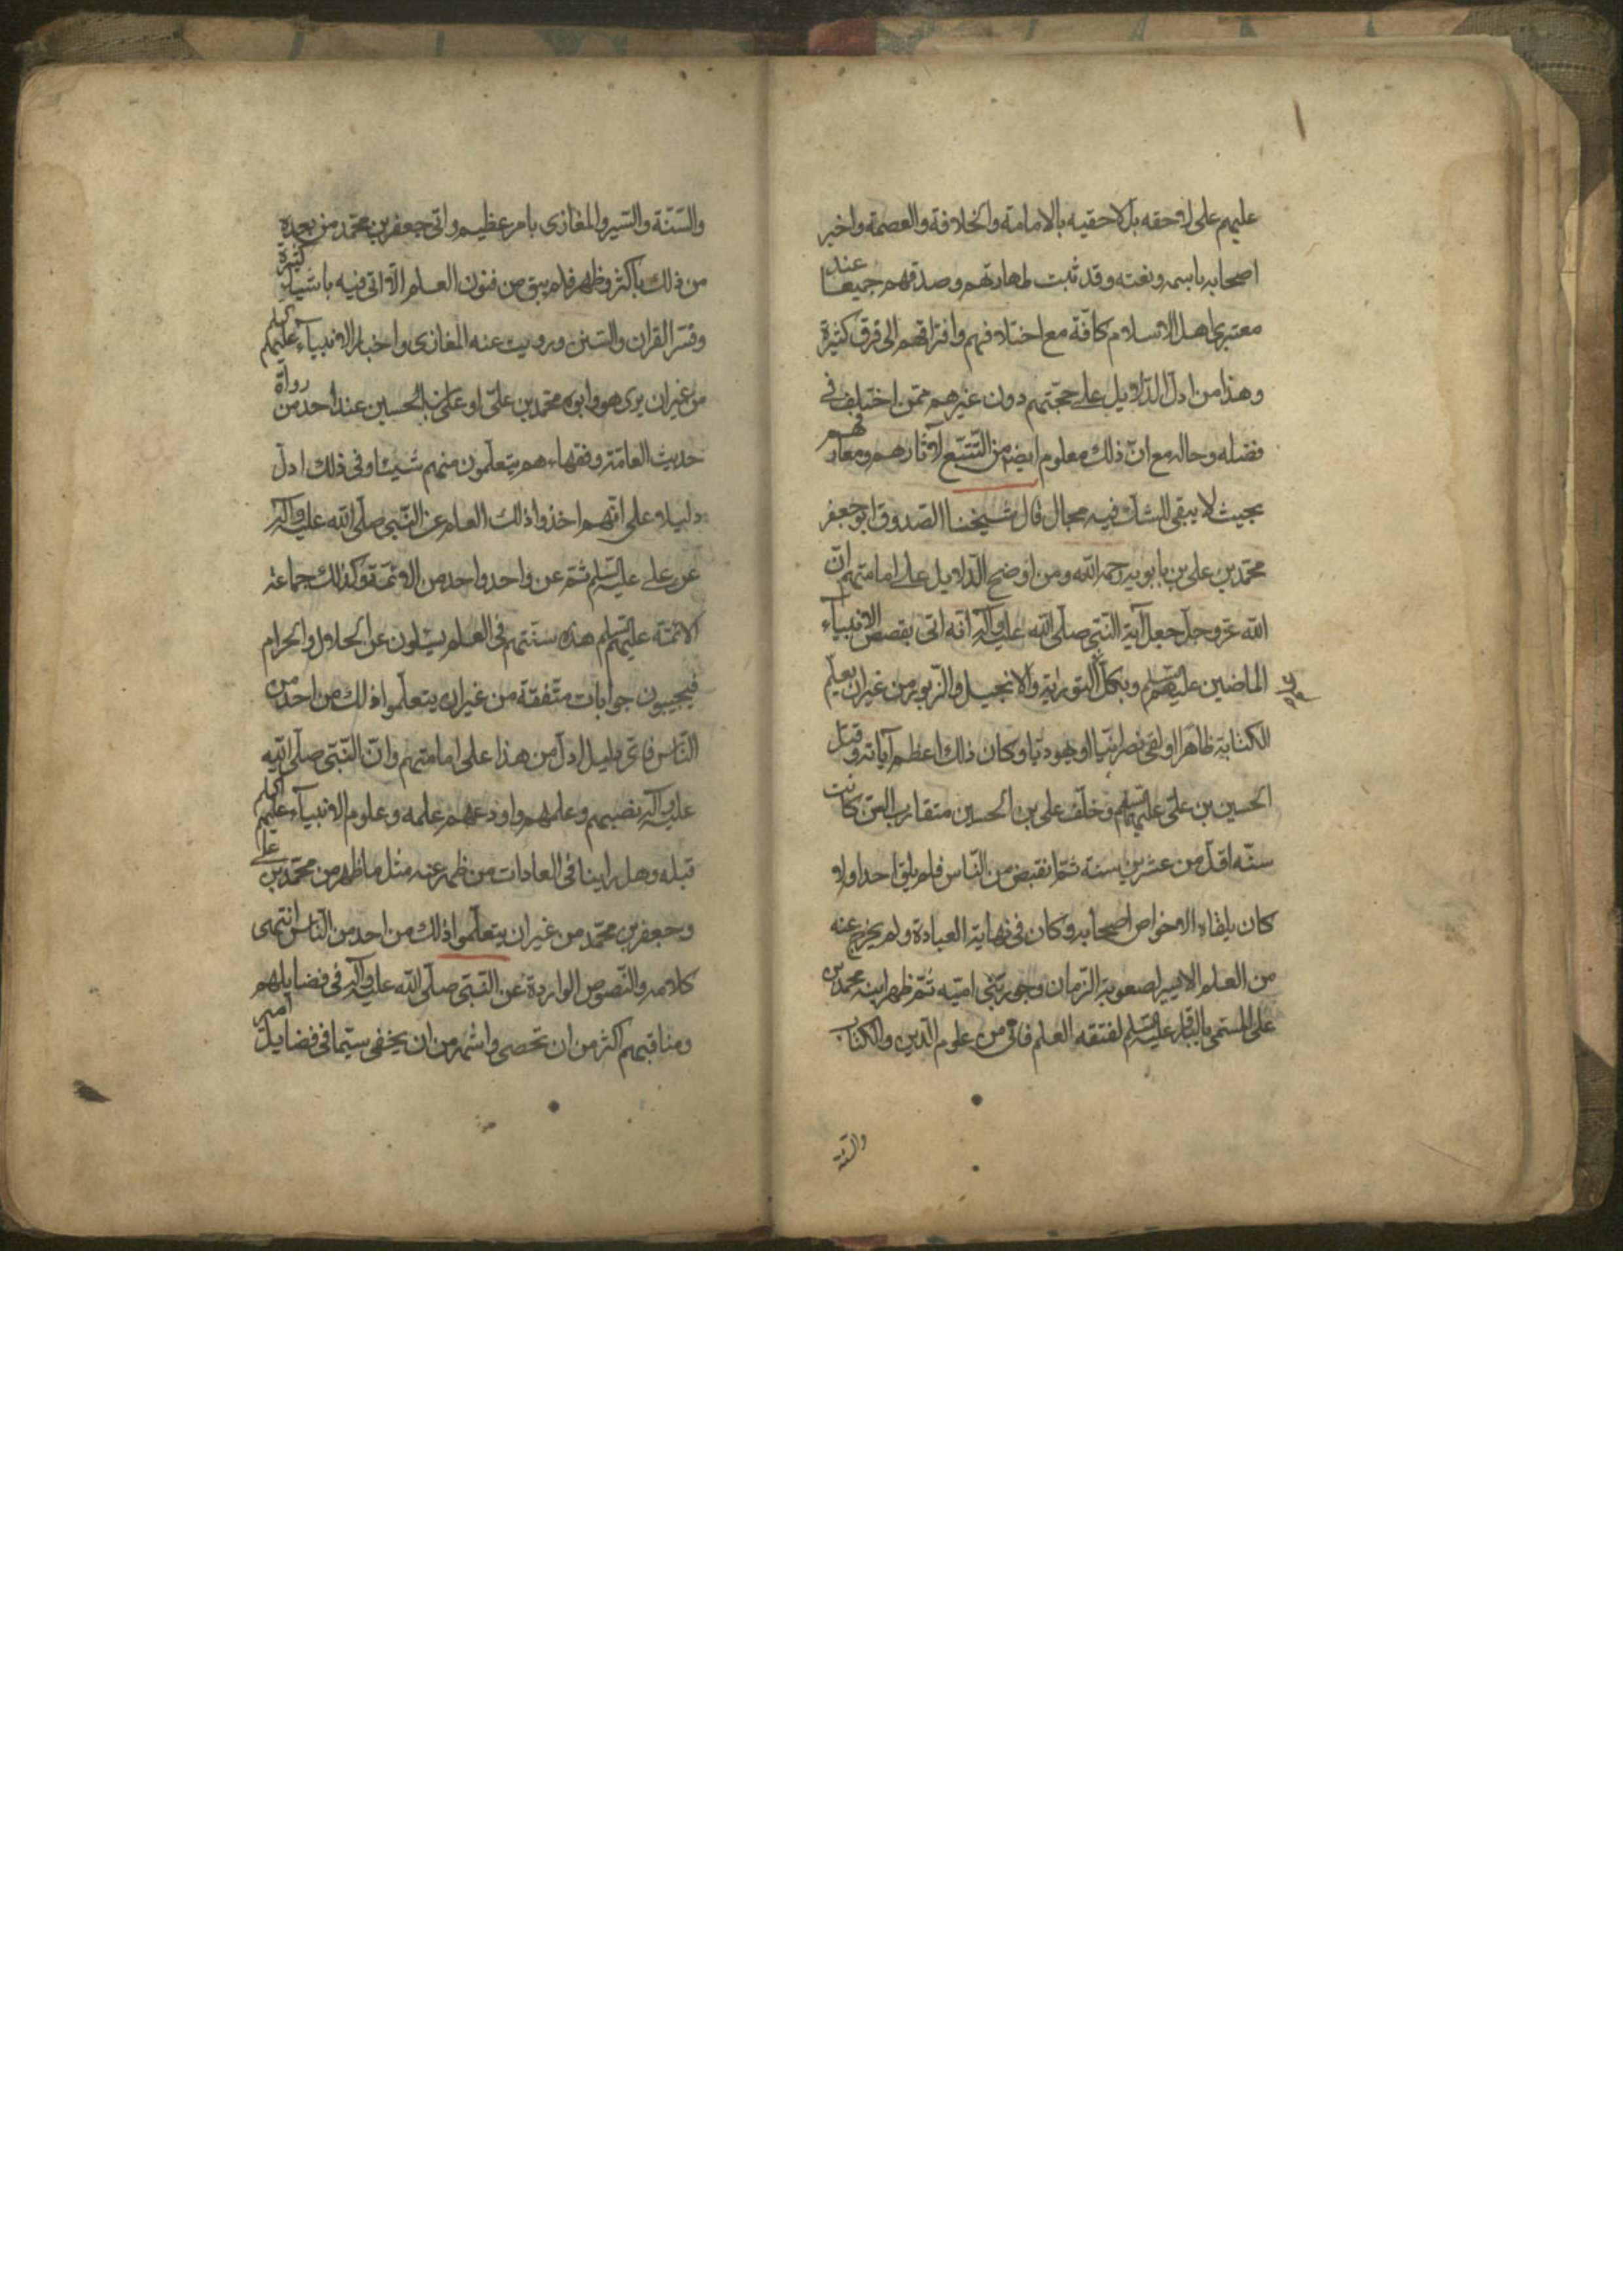 عليهم على لاحقه بل لاحقيه بالامامة والخلافة والعصمة واخبر
اصحابه باسمه ونعته وقد ثبت طهارتهم وصدقهم جميعا عند
معتبرى اهل الاسلام كافّة مع اختلافهم وافتراقهم الى فرق كثيرة
وهذا من ادلّ الدّلايل على حجّتهم دون غيرهم ممّن اختلف فى
فضله وحاله مع انّ ذلك معلوم ايضا من التّتبّع لآثارهم ومعارفهم
بحيث لا يبقى للشك فيه مجال قال شيخنا الصّدوق ابو جعفر
محمّد بن على بن بابويه رحمه اللّه ومن اوضح الدّلايل على امامتهم انّ
اللّه عزّ وجلّ جعل آية النّبىّ صلّى اللّه عليه وآله انّه اتى بقصص الانبياء
الماضين عليهم السّلم وبكلّ التورية والانجيل والزّبور من غير ان يعلم
الكتابة ظاهرا او لقى نصرانيّا او يهوديّا وكان ذلك اعظم آياته وقتل
الحسين بن علىّ عليهما السّلم وخلّف على بن الحسين متقارب السّنّ كانت
سنّه اقلّ من عشرين سنة ثمّ انقبض من النّاس فلم يلق احدا ولا
كان يلقاه الا خواص اصحابه وكان فى نهاية العبادة ولم يخرج عنه
من العلم الا يسير لصعوبة الزّمان وجور بنى اميّه ثمّ ظهر ابنه محمد بن
على المسمّى بالباقر عليه السّلم لفتقه العلم فاتى من علوم الدّين والكتاب
والسّنّة
والسّنّة والسّير والمغازى بامر عظيم واتى جعفر بن محمّد من بعده
من ذلك باكثر وظهر فلم يبق من فنون العلم الّا اتى فيه باشياء كثيرة
وفسّر القران والسّنن ورويت عنه المغازى واخبار الانبياء عليهم السلم
من غير ان يرى هو وابوه محمّد بن علىّ او على بن الحسين عند احد من رواة
حديث العامّة وفقهاءهم يتعلّمون منهم شيئا وفى ذلك ادلّ
دليل على انّهم اخذوا ذلك العلم عن النّبى صلّى اللّه عليه وآله
عن على عليه السّلم ثمّ عن واحد واحد من الائمّة وكذلك جماعة
الائمّة عليهم السّلم هذه سنّتهم فى العلم يسئلون عن الحلال والحرام
فيجيبون جوابات متّفقة من غير ان يتعلّموا ذلك من احد من
النّاس فاىّ دليل ادلّ من هذا على امامتهم وانّ النّبىّ صلّى اللّه
عليه وآله نصبهم وعلمهم واودعهم علمه وعلوم الانبياء عليهم السلم
قبله وهل راينا فى العادات من ظهر عنه مثل ما ظهر من محمّد بن على
وجعفر بن محمّد من غير ان يتعلّموا ذلك من احد من النّاس انتهى
كلامه والنّصوص الواردة عن النّبىّ صلّى اللّه عليه وآله فى فضايلهم
ومناقبهم اكثر من ان تحصى واشهر من ان يخفى سيّما فى فضايل امير